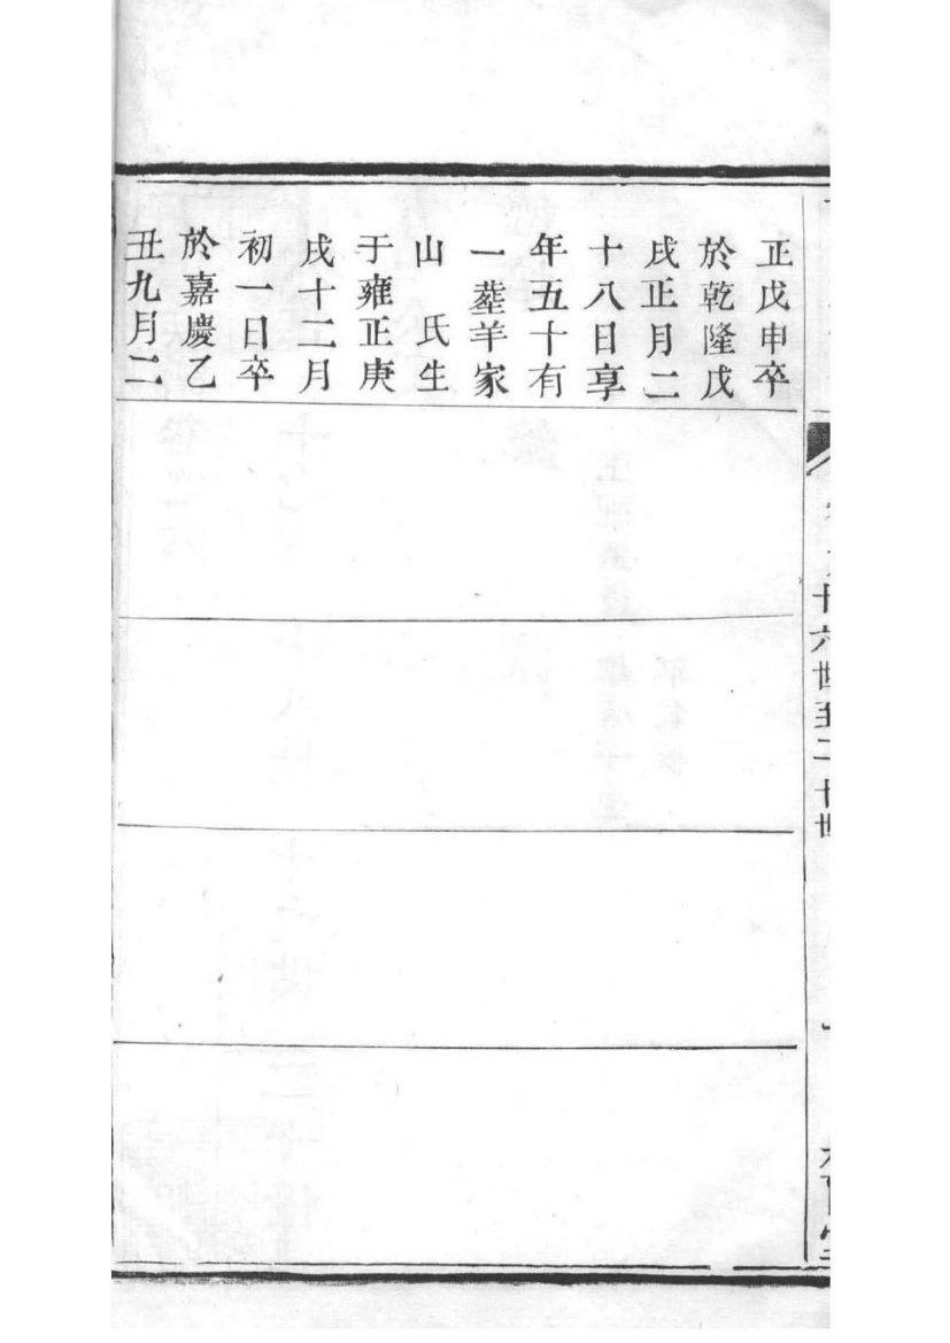 正戊申卒
於乾隆戊
戌正月二
十八日享
年五十有
一塟羊家
山　氏生
于雍正庚
戌十二月
初一日卒
於嘉慶乙
丑九月二
十六世至二十世